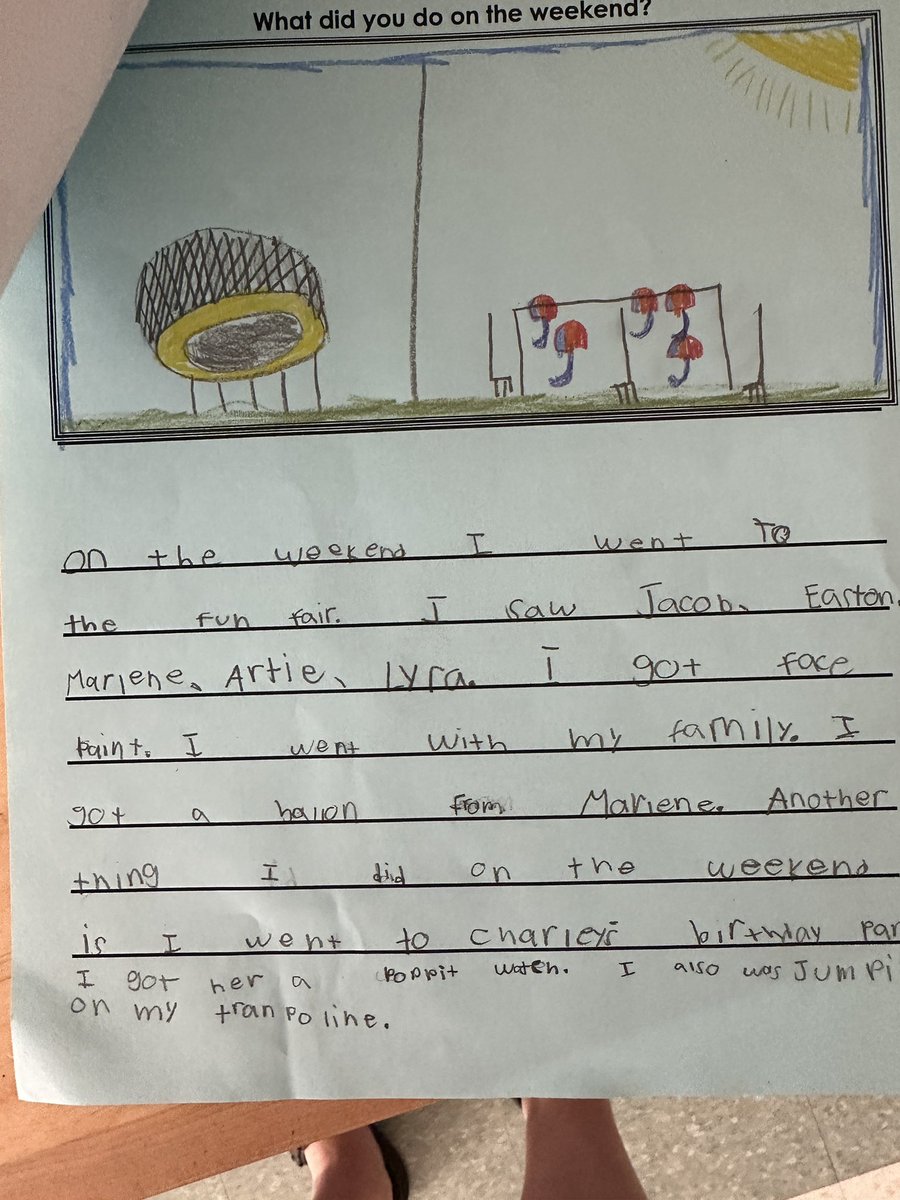 What did you do on the weekend?
on the weekend I went To
the fun fair. I saw Jacob、 Easton,
Marlene、 Artie、 lyra. I got face
paint. I went with my family. I
got a ballon from Marlene. Another
thing I did on the weekend
is I went to charleys birthday par
I got her a poppit watch. I also was Jumpi
on my tranpoline.